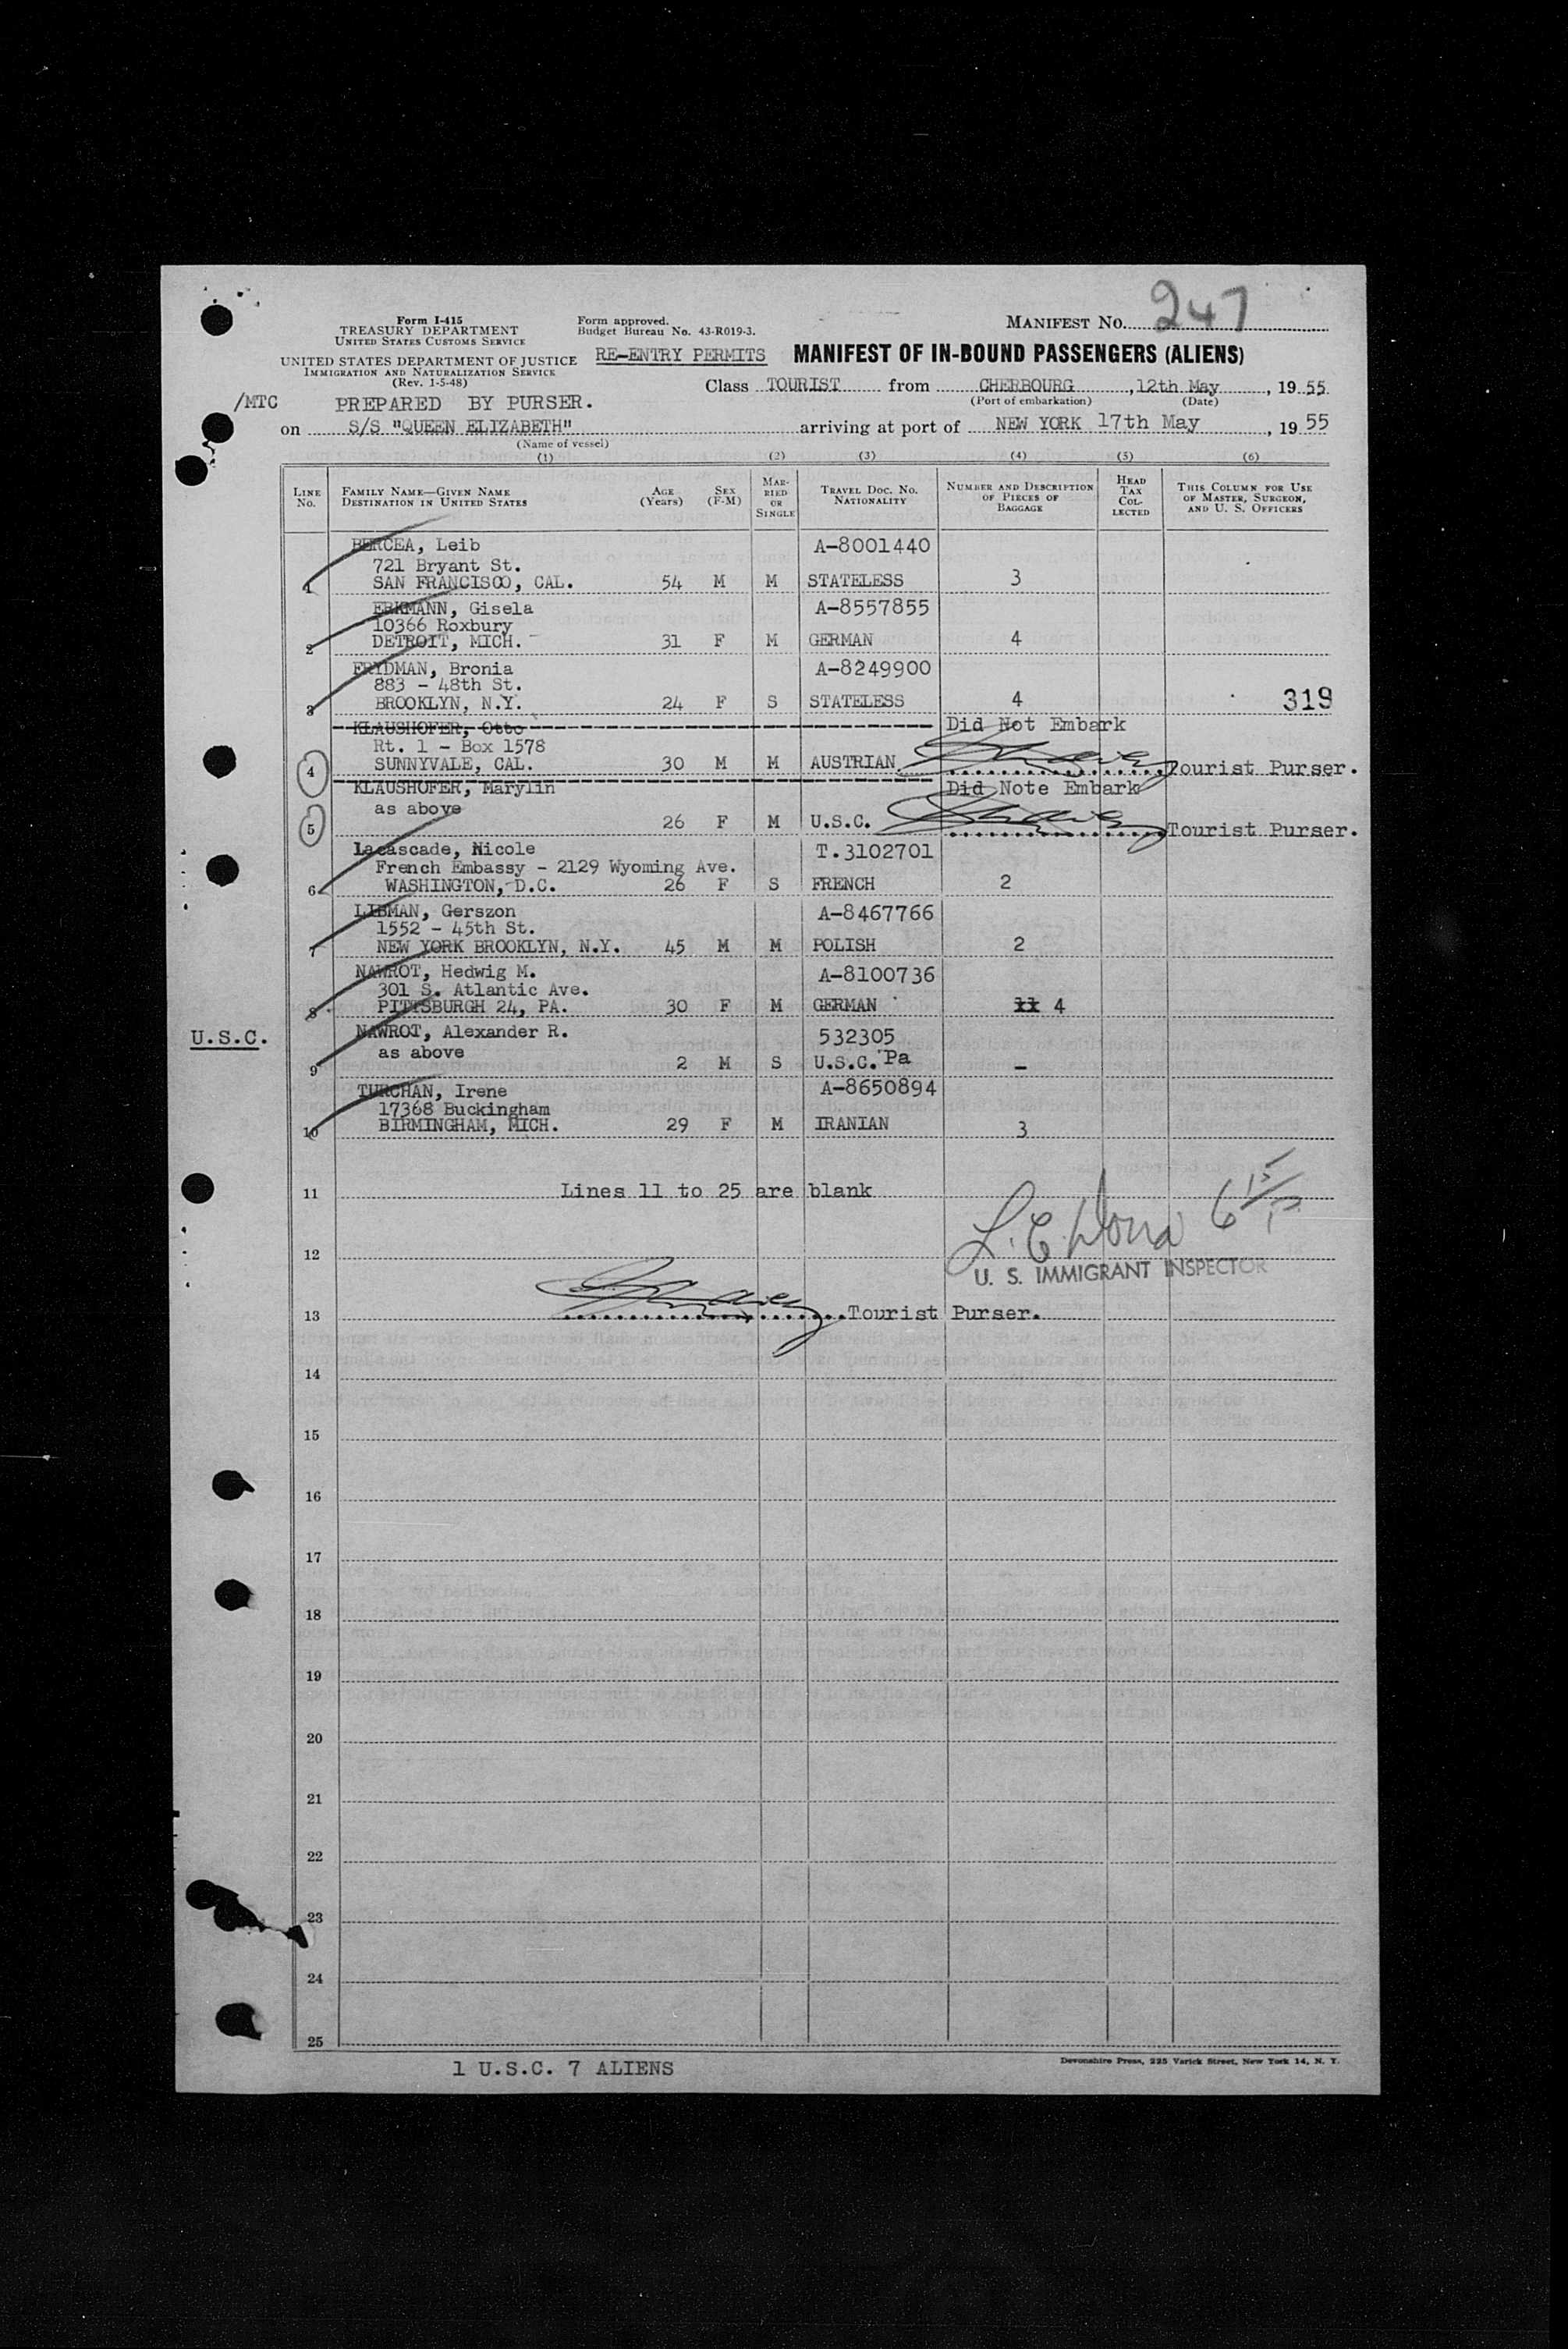 247
Form I-415
TREASURY DEPARTMENT
UNITED STATES CUSTOMS SERVICE
Form approved.
Budget Bureau No. 43-R019-3.
MANIFEST NO.
UNITED STATES DEPARTMENT OF JUSTICE
IMMIGRATION AND NATURALIZATION SERVICE
(Rev. 1-5-48)
RE-ENTRY PERMITS MANIFEST OF IN-BOUND PASSENGERS (ALIENS)
Class TOURIST from CHERBOURG, 12th May, 1955
(Port of embarkation) (Date)
/MTC PREPARED BY PURSER.
on S/S "QUEEN ELIZABETH" arriving at port of NEW YORK 17th May, 1955
(Name of vessel)
(1) (2) (3) (4) (5) (6)
LINE NO. FAMILY NAME—GIVEN NAME DESTINATION IN UNITED STATES AGE (Years) SEX (F-M) MARRIED OR SINGLE TRAVEL DOC. NO. NATIONALITY NUMBER AND DESCRIPTION OF PIECES OF BAGGAGE HEAD TAX COLLECTED THIS COLUMN FOR USE OF MASTER, SURGEON, AND U. S. OFFICERS
BERCEA, Leib A-8001440
721 Bryant St.
1 SAN FRANCISCO, CAL. 54 M M STATELESS 3
ERKMANN, Gisela A-8557855
10366 Roxbury
2 DETROIT, MICH. 31 F M GERMAN 4
FRYDMAN, Bronia A-8249900
883 - 48th St.
3 BROOKLYN, N.Y. 24 F S STATELESS 4 319
KLAUSHOFER, Otto Did Not Embark
Rt. 1 - Box 1578
4 SUNNYVALE, CAL. 30 M M AUSTRIAN Tourist Purser.
KLAUSHOFER, Marylin Did Note Embark
as above
5 26 F M U.S.C. Tourist Purser.
Lacascade, Nicole T.3102701
French Embassy - 2129 Wyoming Ave.
6 WASHINGTON, D.C. 26 F S FRENCH 2
LIBMAN, Gerszon A-8467766
1552 - 45th St.
7 NEW YORK BROOKLYN, N.Y. 45 M M POLISH 2
NAWROT, Hedwig M. A-8100736
301 S. Atlantic Ave.
8 PITTSBURGH 24, PA. 30 F M GERMAN 4
U.S.C. NAWROT, Alexander R. 532305
as above
9 2 M S U.S.C. Pa -
TURCHAN, Irene A-8650894
17368 Buckingham
10 BIRMINGHAM, MICH. 29 F M IRANIAN 3
11 Lines 11 to 25 are blank
12
U. S. IMMIGRANT INSPECTOR
13 Tourist Purser.
14
15
16
17
18
19
20
21
22
23
24
25
1 U.S.C. 7 ALIENS
Devonshire Press, 225 Varick Street, New York 14, N. Y.